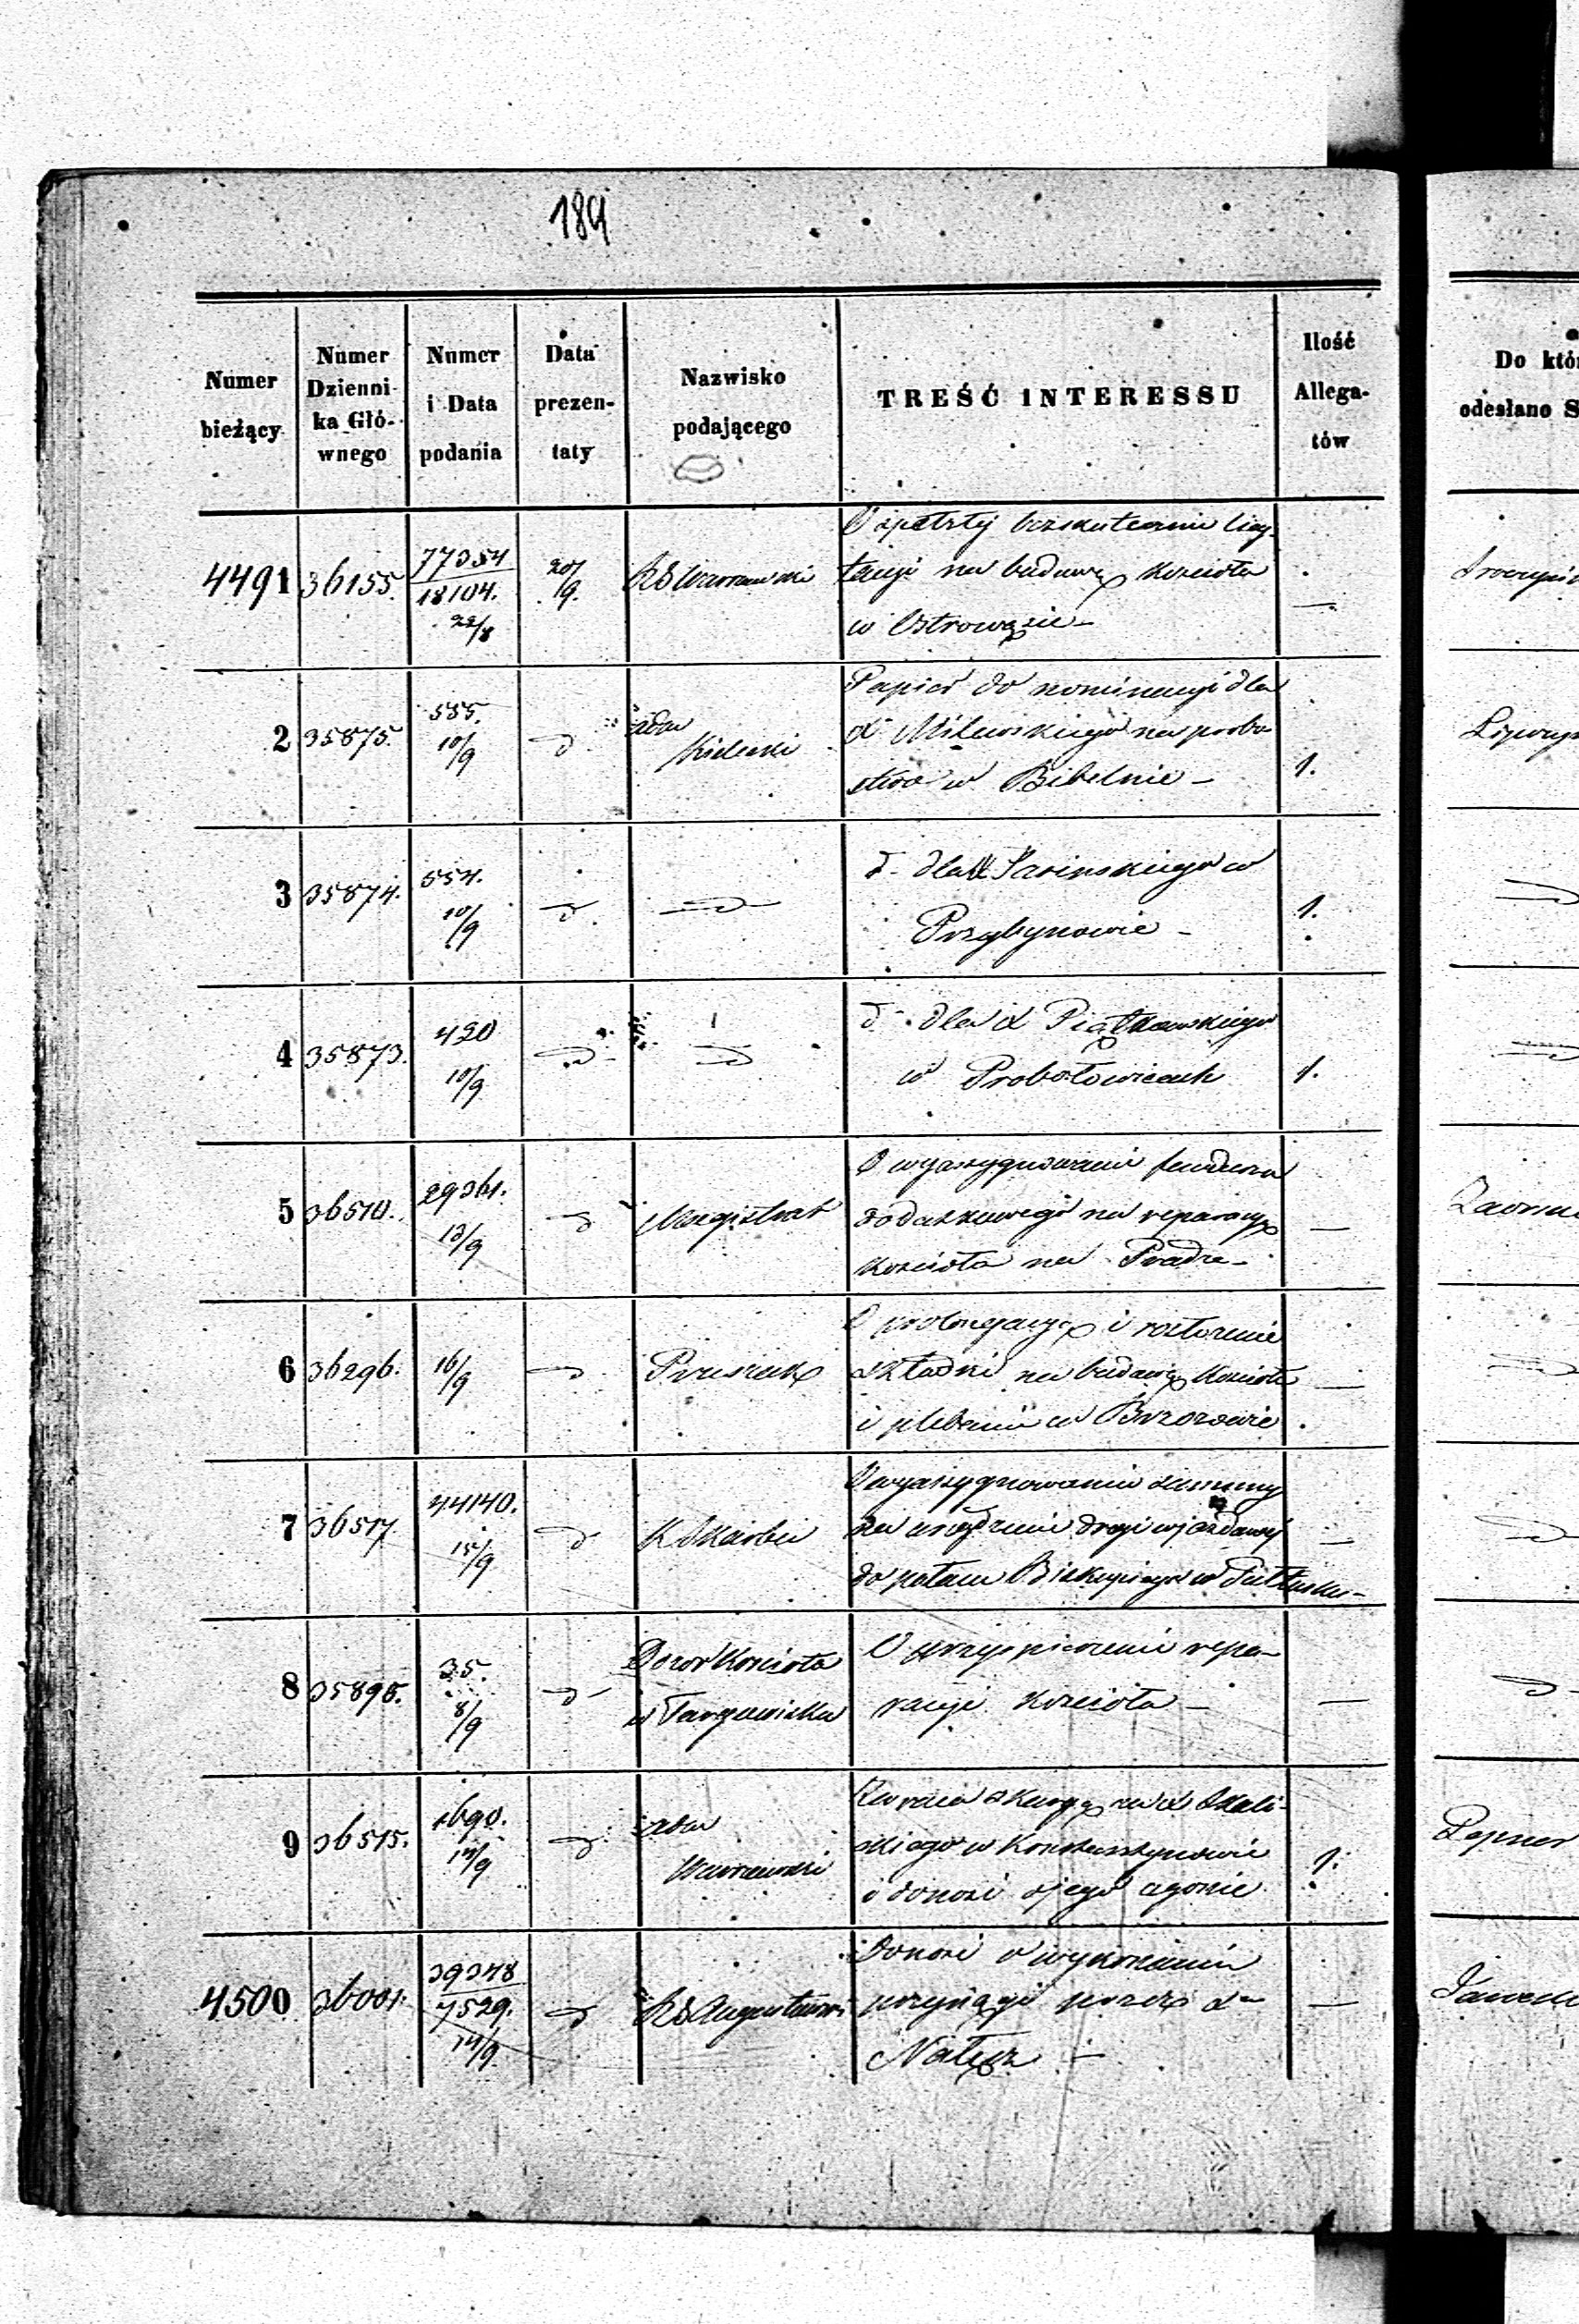 189
Numer bieżący
Numer Dzienni- ka Głó- wnego
Numer i Data podania
Data prezen- taty
Nazwisko podającego
TREŚĆ INTERESSU
Ilość Allega- tów
Do któr
odesłano S
4491 36155. 77354 18104. 22/8 20/9. RG Warszawski
O spełzłej bezskutecznie licy-
tacyi na budowę kościoła
w Ostrowąsie —
2 35875. 555. 10/9 d Adm Kielecki
Papier do nominacyi dla
X Milewskiego na probo-
stwo w Bibelnie — 1.
3 35874. 554. 10/9 d d
d. dla X Jasinskiego w
Przybynowie — 1.
4 35873. 420 10/9 d d
d. dla X Piątkowskiego
w Probołowicach 1.
5 36510. 29361. 13/9 d Magistrat
O wyassygnowanie funduszu
dodatkowego na reparacyę
kościoła na Pradze — —
6 36296. 16/9 d Pruszak
O prolongacyę i rozłożenie
składki na budowę kościoła —
i plebanii w Brzozowie
7 36517. 44140. 15/9 d K Skarbu
O wyassygnowanie summy
na urządzenie drogi wjazdowej —
do pałacu Biskupiego w Pułtusku —
8 35895. 35. 8/9 d Dozór Kościoła w Targowisku
O przyspieszenie repa-
racyi kościoła — —
9 36515. 1690. 14/9 d Adm Warszawski
Zwraca skargę na X Skali-
skiego w Konstantynowie
i donosi o jego zgonie 1.
4500 36001. 39348 7529. 14/9 d RG Augustowski
Donosi o wykonaniu
przysięgi przez X
Nałęcz — —